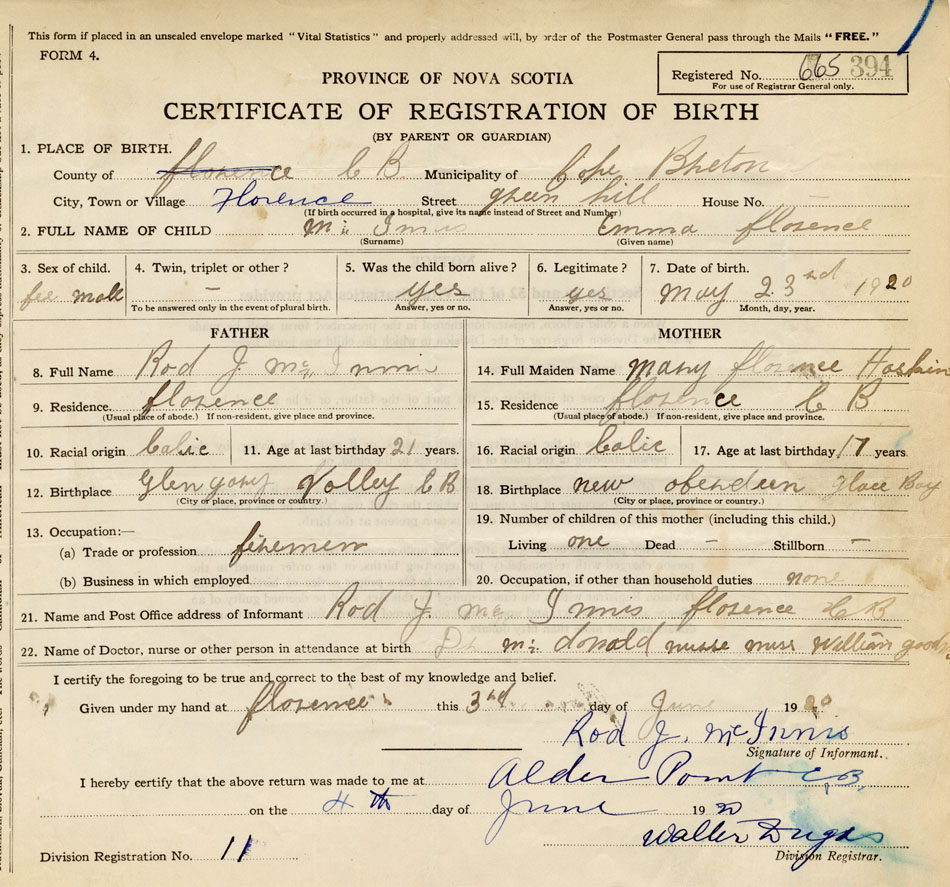 This form if placed in an unsealed envelope marked "Vital Statistics" and properly addressed will, by order of the Postmaster General pass through the Mails "FREE."
FORM 4.
Registered No. 665 394
For use of Registrar General only.
PROVINCE OF NOVA SCOTIA
CERTIFICATE OF REGISTRATION OF BIRTH
(BY PARENT OR GUARDIAN)
1. PLACE OF BIRTH.
County of florence C B. Municipality of Cope Breton
City, Town or Village Florence Street green hill House No.
(If birth occurred in a hospital, give its name instead of Street and Number)
2. FULL NAME OF CHILD Mc Innis Emma florence
(Surname) (Given name)
3. Sex of child. 4. Twin, triplet or other? 5. Was the child born alive? 6. Legitimate? 7. Date of birth.
fee male — yes yes May 23rd 1920
To be answered only in the event of plural birth. Answer, yes or no. Answer, yes or no. Month, day, year.
FATHER MOTHER
8. Full Name Rod J. Mc Innis 14. Full Maiden Name Mary florence
9. Residence florence 15. Residence florence C B
(Usual place of abode.) If non-resident, give place and province. (Usual place of abode.) If non-resident, give place and province.
10. Racial origin Calic 11. Age at last birthday 21 years. 16. Racial origin Calic 17. Age at last birthday 17 years.
12. Birthplace Valley C B 18. Birthplace new Glace Bay
(City or place, province or country.) (City or place, province or country.)
13. Occupation:— 19. Number of children of this mother (including this child.)
(a) Trade or profession Living one Dead — Stillborn —
(b) Business in which employed 20. Occupation, if other than household duties none
21. Name and Post Office address of Informant Rod J. Mc Innis florence C B
22. Name of Doctor, nurse or other person in attendance at birth Dr Mc donald nurse miss William
I certify the foregoing to be true and correct to the best of my knowledge and belief.
Given under my hand at florence this 3rd day of June 1920
Rod J. McInnis
Signature of Informant.
I hereby certify that the above return was made to me at Alder Point C.B.
on the 4th day of June 1920
Walter Dugas
Division Registrar.
Division Registration No. 11